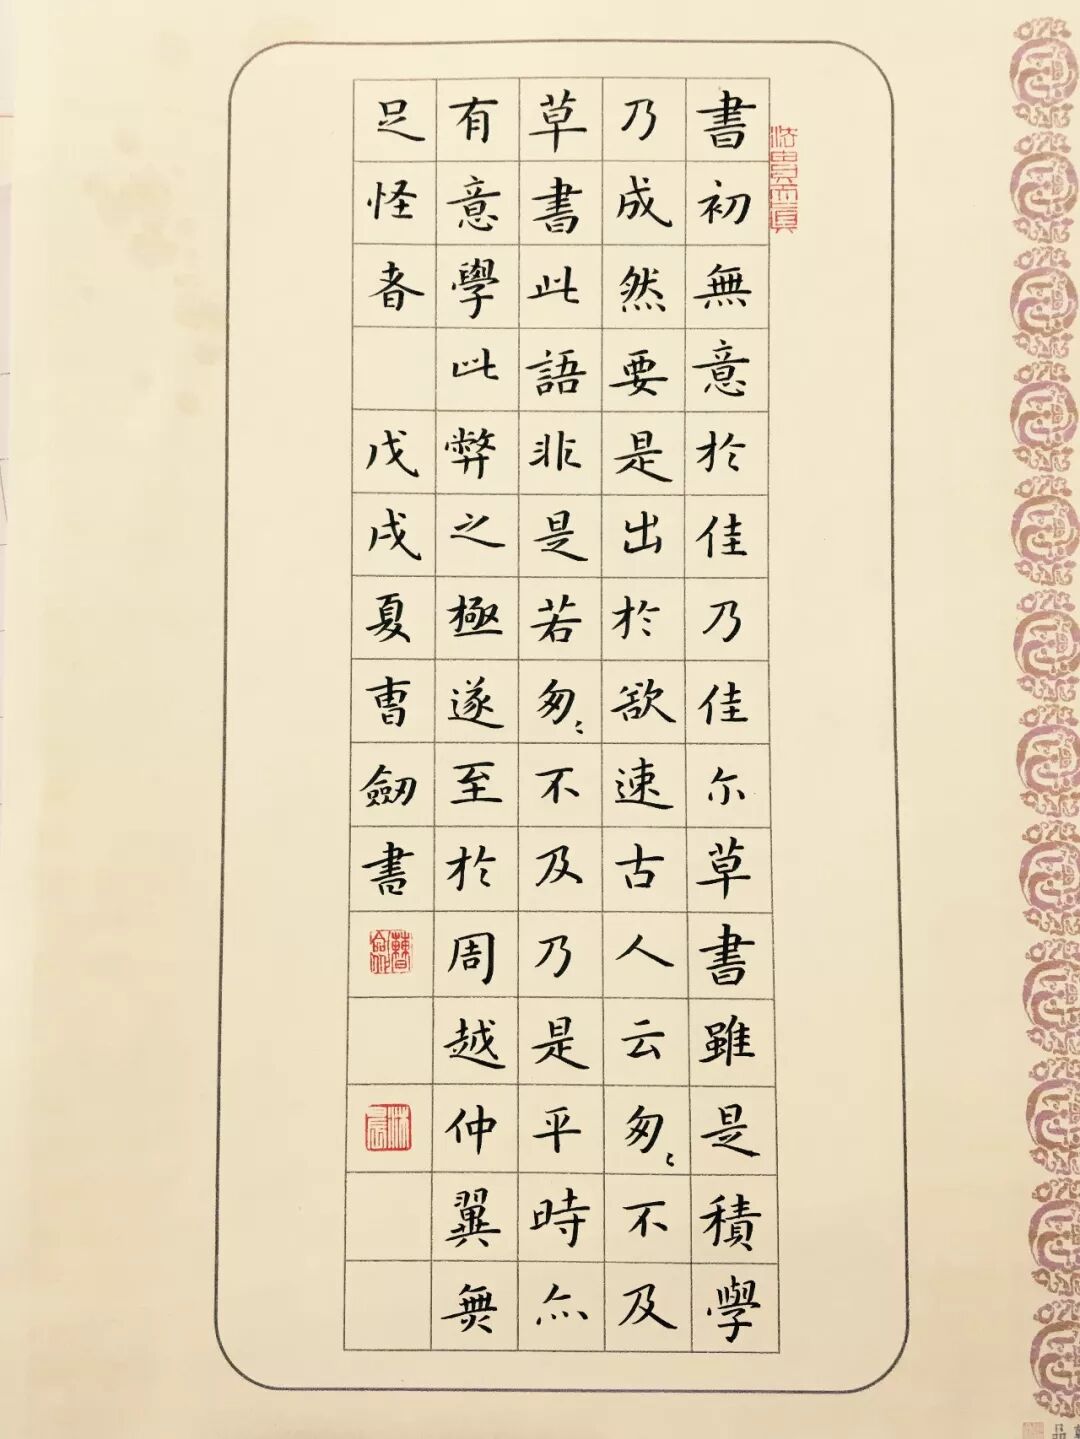 書初無意於佳乃佳尔草書雖是積學
乃成然要是出於欲速古人云匆〻不及
草書此語非是若匆〻不及乃是平時亦
有意學此弊之極遂至於周越仲翼無
足怪者 戊戌夏曺劒書
法貴天真